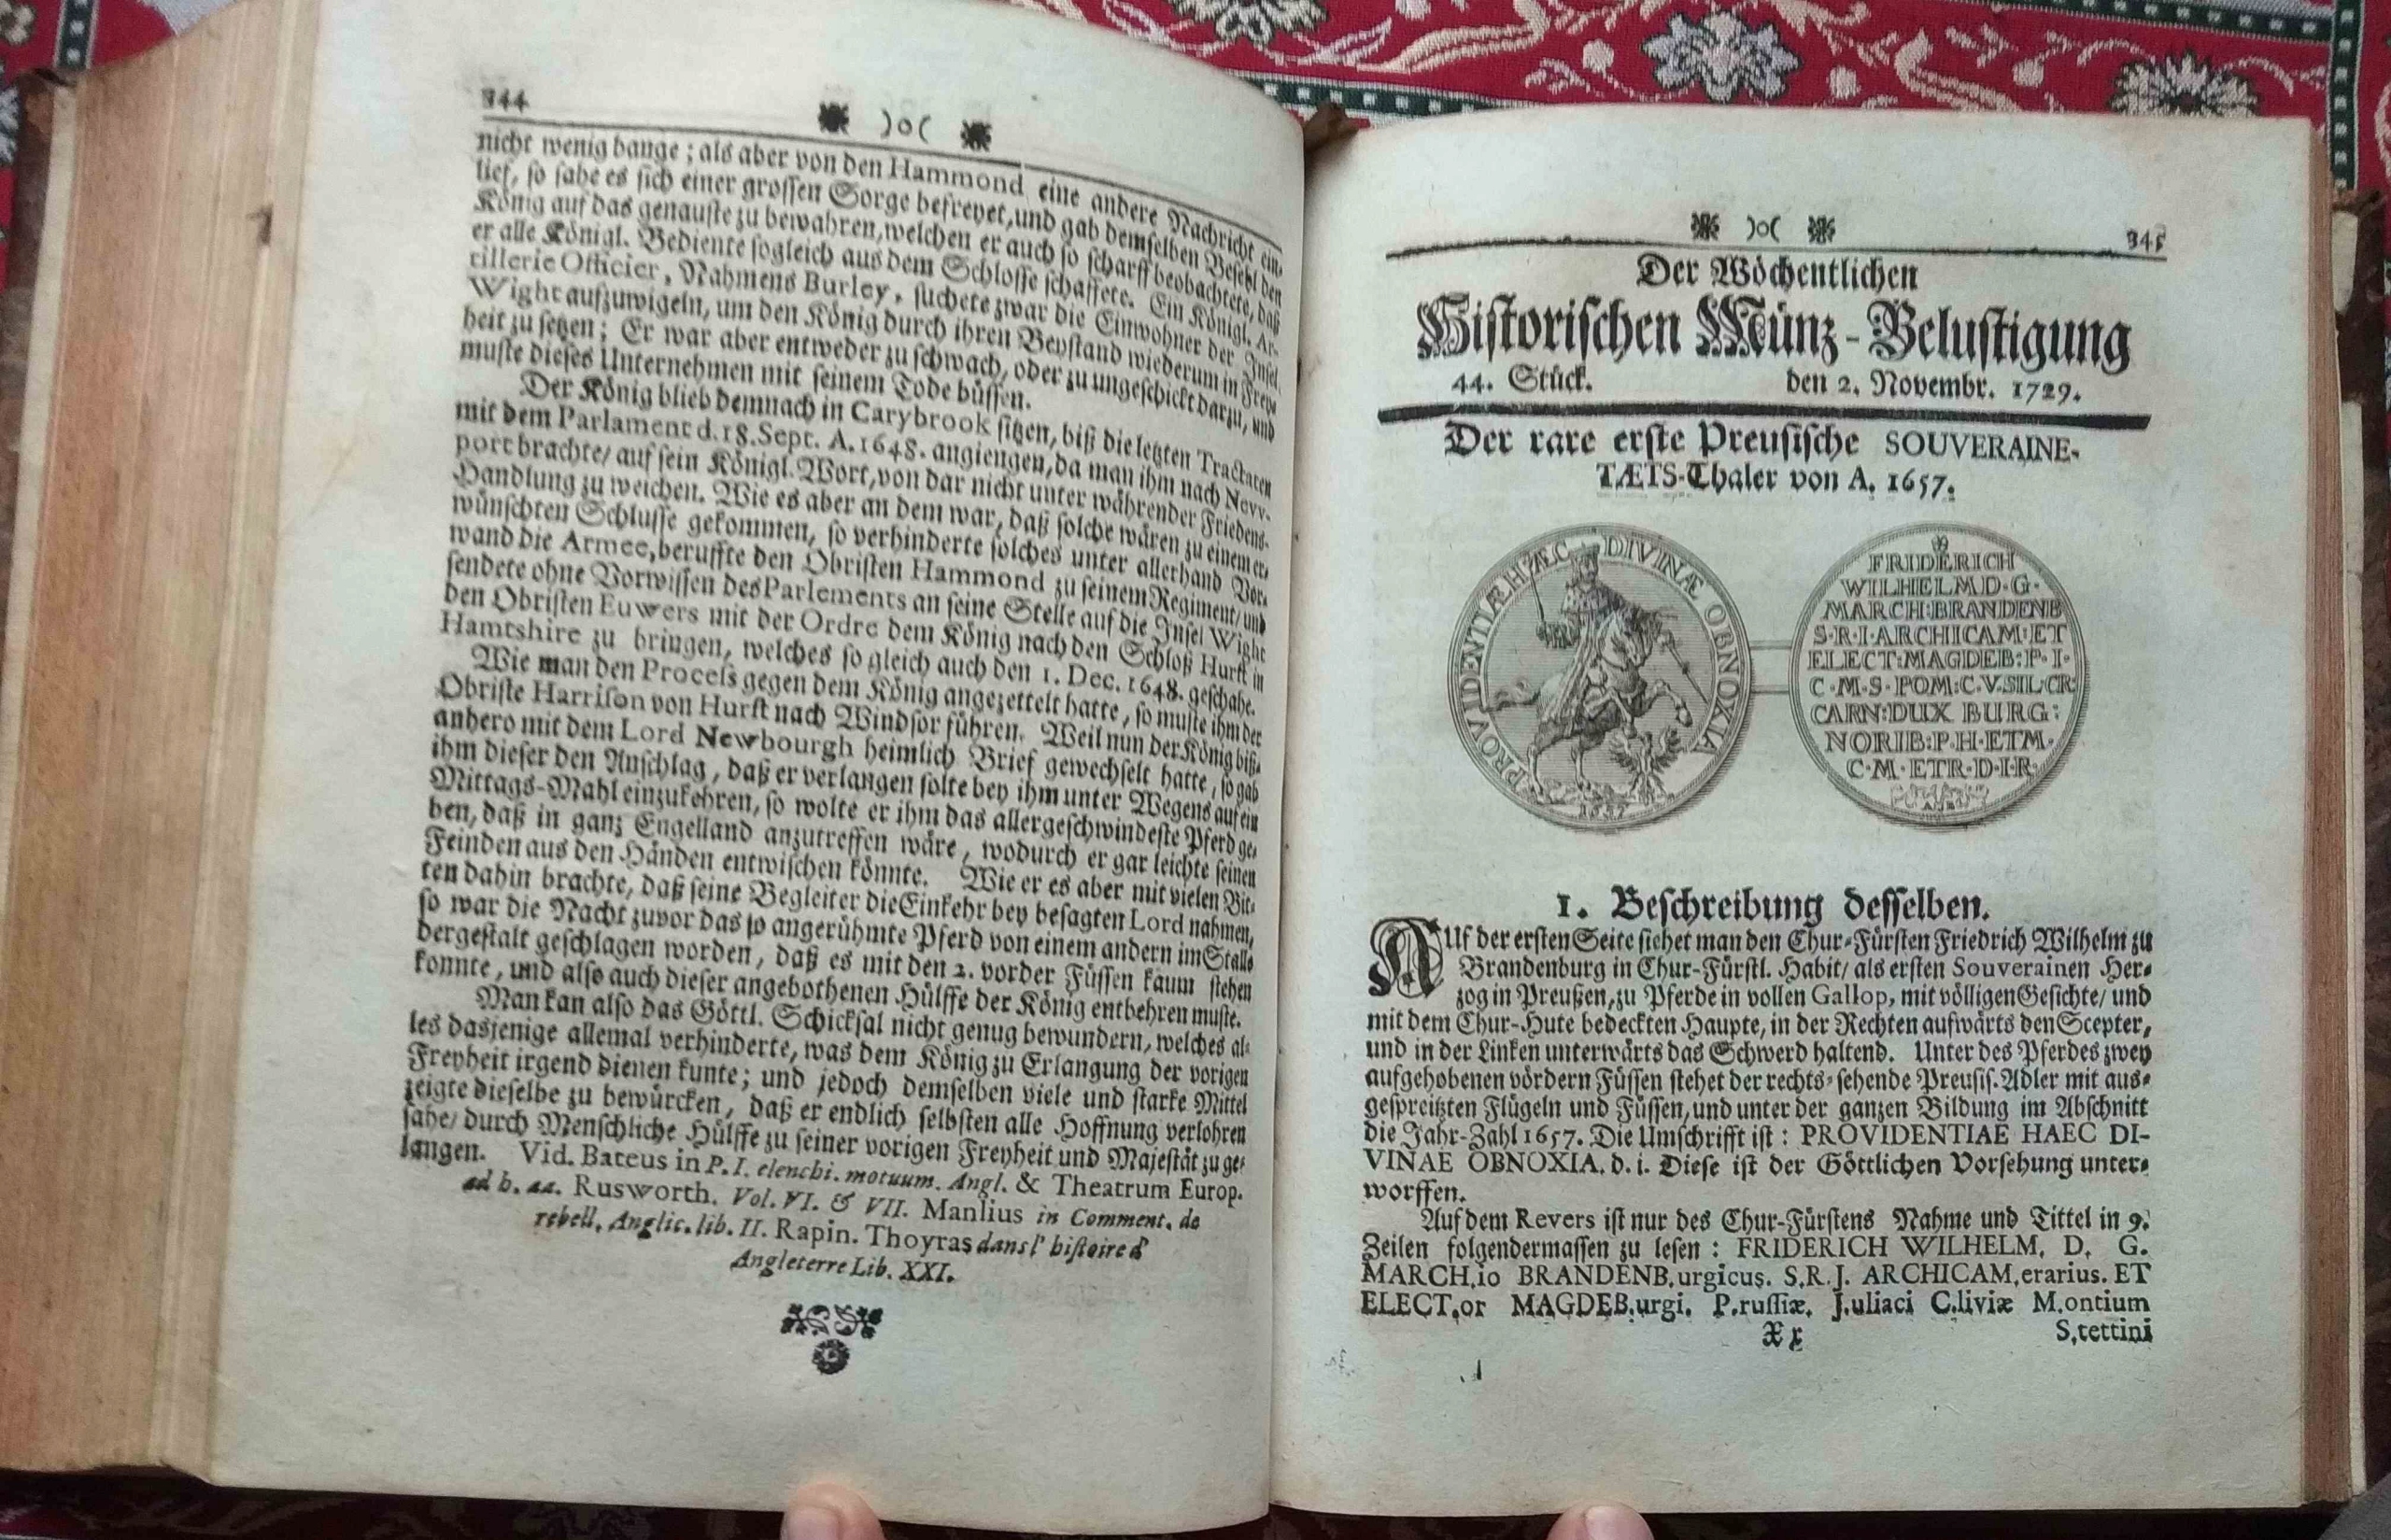 344
)o(
nicht wenig bange; als aber von den Hammond eine andere Nachricht ein-
lief, so sahe es sich einer grossen Sorge befreyet, und gab demselben Befehl den
König auf das genauste zu bewahren, welchen er auch so scharff beobachtete, daß
er alle Königl. Bediente sogleich aus dem Schlosse schaffete. Ein Königl. Ar-
tillerie Officier, Nahmens Burley, suchete zwar die Einwohner der Insel
Wight aufzuwigeln, um den König durch ihren Beystand wiederum in Frey-
heit zu setzen; Er war aber entweder zu schwach, oder zu ungeschickt darzu, und
muste dieses Unternehmen mit seinem Tode büssen.
Der König blieb demnach in Carybrook sitzen, biß die letzten Tractaten
mit dem Parlament d. 18. Sept. A. 1648. angiengen, da man ihm nach Nevv-
port brachte/ auf sein Königl. Wort, von dar nicht unter währender Friedens-
Handlung zu weichen. Wie es aber an dem war, daß solche wären zu einem er-
wünschten Schlusse gekommen, so verhinderte solches unter allerhand Vor-
wand die Armee, beruffte den Obristen Hammond zu seinem Regiment/ und
sendete ohne Vorwissen des Parlements an seine Stelle auf die Insel Wight
den Obristen Euwers mit der Ordre dem König nach den Schloß Hurst in
Hamtshire zu bringen, welches so gleich auch den 1. Dec. 1648. geschahe.
Wie man den Process gegen dem König angezettelt hatte, so muste ihm der
Obriste Harrison von Hurst nach Windsor führen. Weil nun der König biß-
anhero mit dem Lord Newbourgh heimlich Brief gewechselt hatte, so gab
ihm dieser den Anschlag, daß er verlangen solte bey ihm unter Wegens auf ein
Mittags-Mahl einzukehren, so wolte er ihm das allergeschwindeste Pferd ge-
ben, daß in ganz Engelland anzutreffen wäre, wodurch er gar leichte seinen
Feinden aus den Händen entwischen könnte. Wie er es aber mit vielen Bit-
ten dahin brachte, daß seine Begleiter die Einkehr bey besagten Lord nahmen,
so war die Nacht zuvor das so angerühmte Pferd von einem andern im Stalle
dergestalt geschlagen worden, daß es mit den 2. vorder Füssen kaum stehen
konnte, und also auch dieser angebothenen Hülffe der König entbehren muste.
Man kan also das Göttl. Schicksal nicht genug bewundern, welches al-
les dasjenige allemal verhinderte, was dem König zu Erlangung der vorigen
Freyheit irgend dienen kunte; und jedoch demselben viele und starke Mittel
zeigte dieselbe zu bewürcken, daß er endlich selbsten alle Hoffnung verlohren
sahe/ durch Menschliche Hülffe zu seiner vorigen Freyheit und Majestät zu ge-
langen. Vid. Bateus in P. I. elenchi. motuum. Angl. & Theatrum Europ.
ad h. aa. Rusworth. Vol. VI. & VII. Manlius in Comment. de
rebell. Anglic. lib. II. Rapin. Thoyras dans l' histoire d'
Angleterre Lib. XXI.
)o(
345
Der Wöchentlichen
Historischen Münz-Belustigung
44. Stück. den 2. Novembr. 1729.
Der rare erste Preusische SOUVERAINE-
TÆTS-Thaler von A. 1657.
PROVIDENTIÆ HÆC DIVINÆ OBNOXIA
1657
FRIDERICH
WILHELM D·G·
MARCH:BRANDENB
S·R·I·ARCHICAM:ET
ELECT:MAGDEB:P·I·
C·M·S·POM:C·V·SIL·CR
CARN:DUX BURG:
NORIB:P·H·ETM·
C·M·ETR·D·I·R·
1. Beschreibung desselben.
AUf der ersten Seite siehet man den Chur-Fürsten Friedrich Wilhelm zu
Brandenburg in Chur-Fürstl. Habit/ als ersten Souverainen Her-
zog in Preußen, zu Pferde in vollen Gallop, mit völligen Gesichte/ und
mit dem Chur-Hute bedeckten Haupte, in der Rechten aufwärts den Scepter,
und in der Linken unterwärts das Schwerd haltend. Unter des Pferdes zwey
aufgehobenen vördern Füssen stehet der rechts-sehende Preusis. Adler mit aus-
gespreitzten Flügeln und Füssen, und unter der ganzen Bildung im Abschnitt
die Jahr-Zahl 1657. Die Umschrifft ist: PROVIDENTIAE HAEC DI-
VINAE OBNOXIA. d. i. Diese ist der Göttlichen Vorsehung unter-
worffen.
Auf dem Revers ist nur des Chur-Fürstens Nahme und Tittel in 9.
Zeilen folgendermassen zu lesen: FRIDERICH WILHELM, D. G.
MARCH,io BRANDENB,urgicus. S.R.J. ARCHICAM,erarius. ET
ELECT,or MAGDEB,urgi. P.russiæ, J.uliaci C.liviæ M.ontium
Xx S,tettini